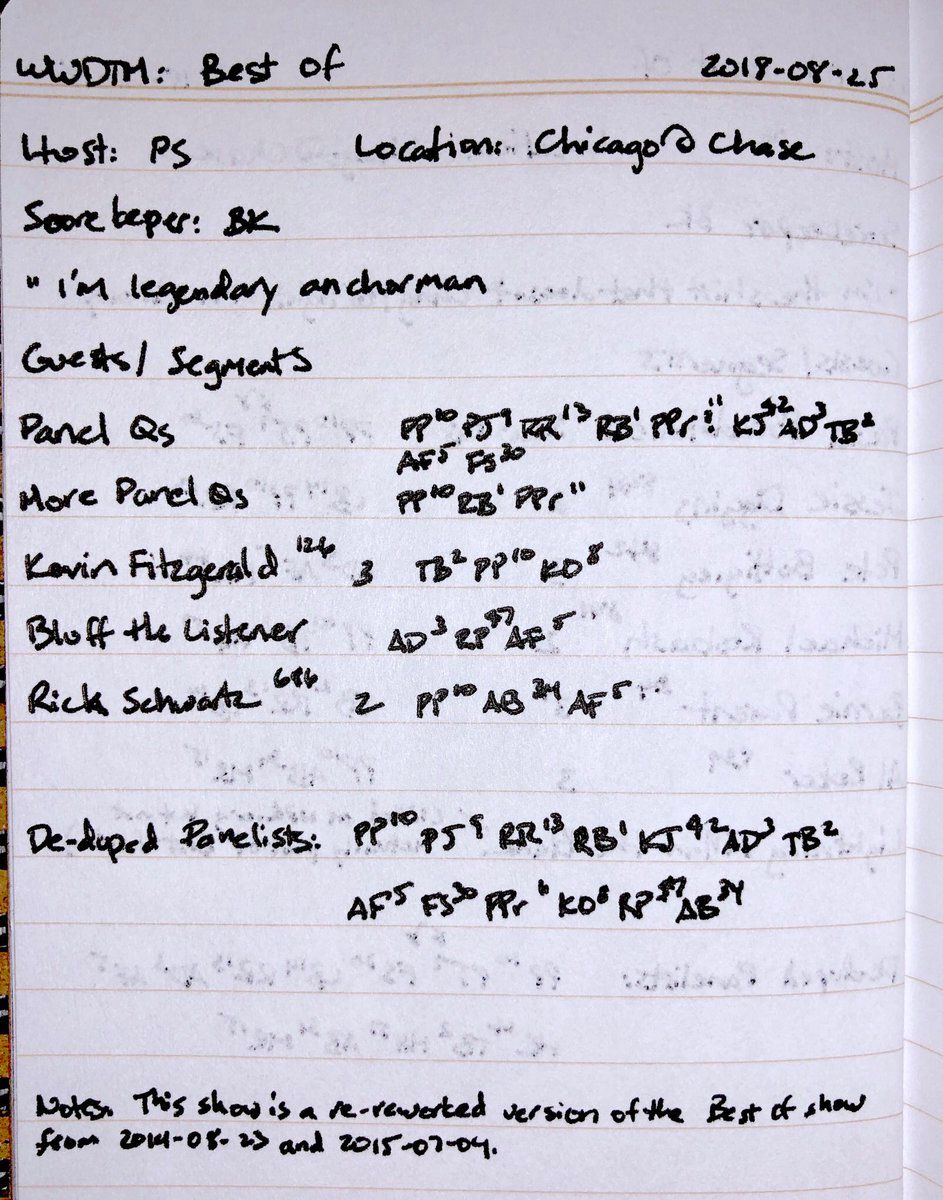 WWDTM: Best of 2018-08-25
Host: PS Location: Chicago@Chase
Scorekeeper: BK
" I'm legendary anchorman
Guests/ Segments
Panel Qs PP¹⁰ PJ⁹ RR¹³ RB¹ PPr¹¹ KJ⁴² AD³ TB²
AF⁵ FS³⁰
More Panel Qs PP¹⁰ RB¹ PPr¹¹
Kevin Fitzgerald¹²⁶ 3 TB² PP¹⁰ KO⁸
Bluff the Listener AD³ RP⁵⁷ AF⁵
Rick Schwartz⁶⁸⁶ 2 PP¹⁰ AB³⁴ AF⁵
De-duped Panelists: PP¹⁰ PJ⁹ RR¹³ RB¹ KJ⁴² AD³ TB²
AF⁵ FS³⁰ PPr¹¹ KO⁸ RP⁵⁷ AB³⁴
Notes. This show is a re-reworked version of the Best of show
from 2014-08-23 and 2015-07-04.